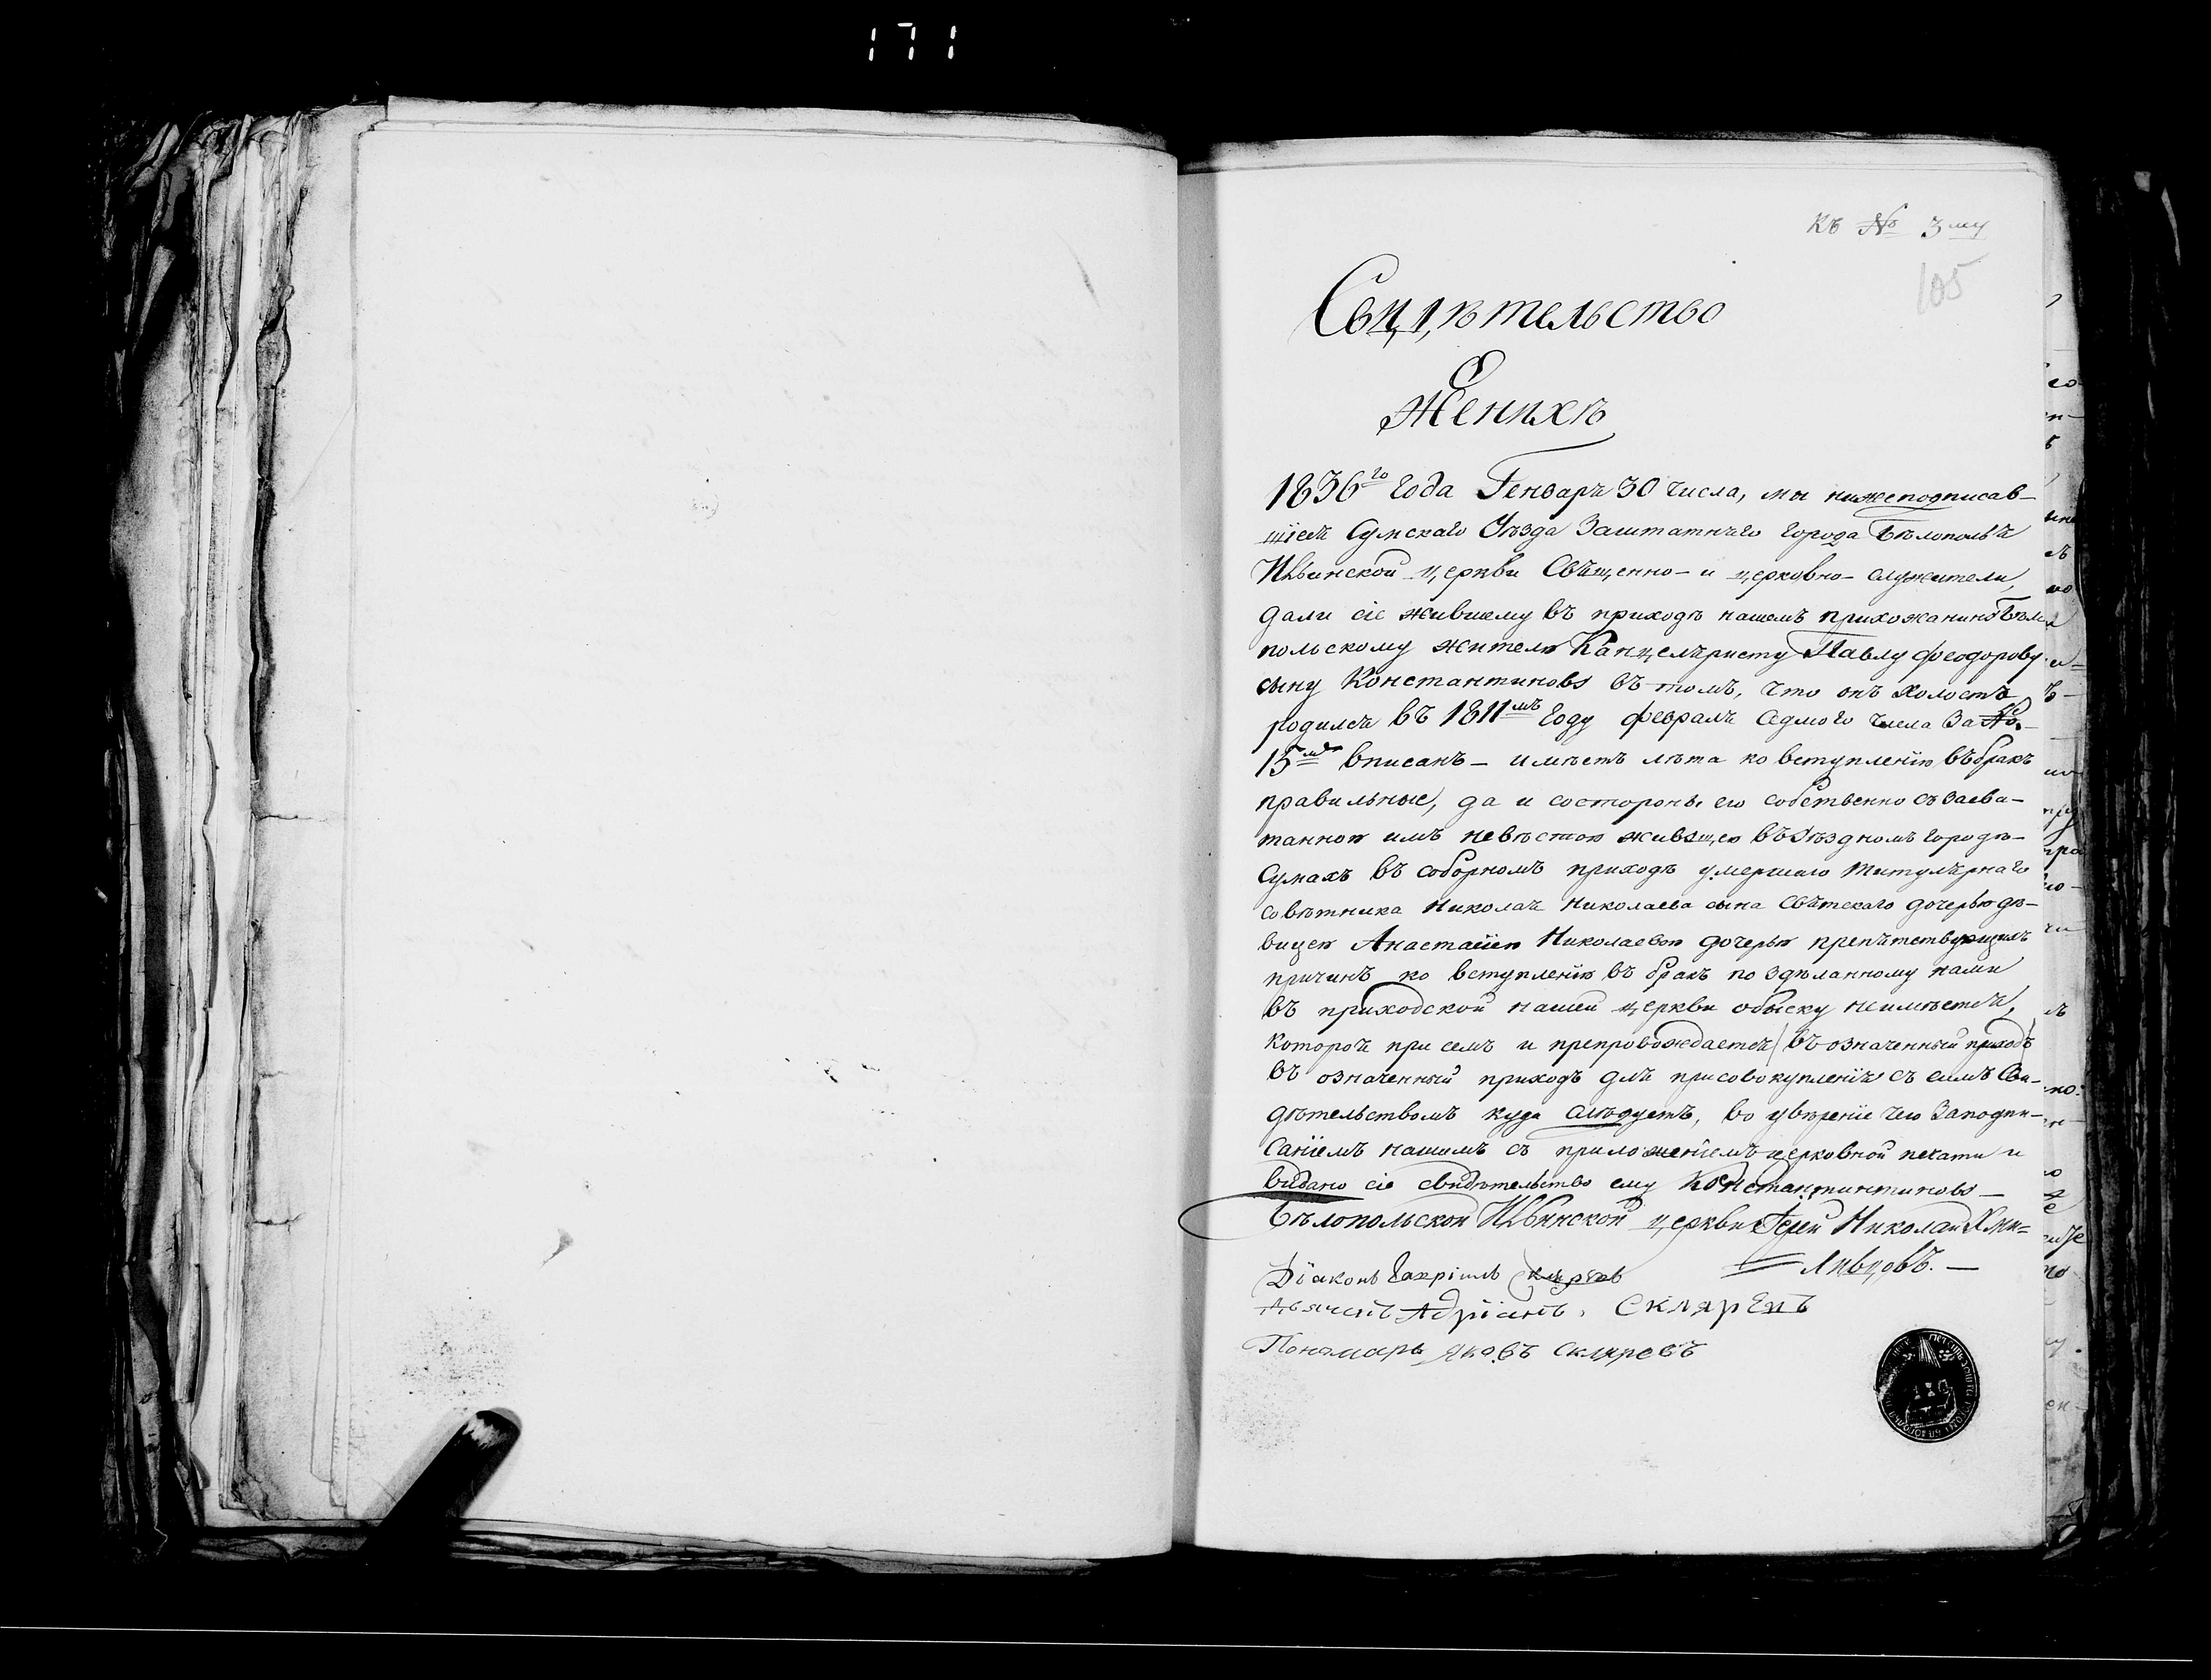 171
Къ № 3му
105
Свидѣтельство
О
Женихѣ
1836го Года Генваря 30 числа, мы нижеподписав-
шіеся Сумскаго Уѣзда Заштатнаго города Бѣлополья
Ильинской церкви Священно- и церковно- служители,
дали сіе жившему въ приходѣ нашемъ прихожанину Бѣло
польскому жителю Канцеляристу Павлу Феодорову
сыну Константинову въ томъ, что онъ холостъ
родился въ 1811мъ Году февраля седмого числа За №
15мъ вписанъ - имѣетъ лѣта ко вступленію въ бракъ
правильные, да и состороны его собственно съ засва-
танною имъ невѣстою живущею въ Уѣздномъ городѣ
Сумахъ въ соборномъ приходѣ умершаго титулярнаго
совѣтника Николая Николаева сына Свѣтскаго дочерью дѣ-
вицею Анастасіею Николаевою дочерью препятствующихъ
причинъ ко вступленію въ бракъ по здѣланному нами
въ приходской нашей церкви обыску неимѣется,
которой при семъ и препровождается (въ означенный приходъ)
въ означенный приходъ для присовокупленія съ симъ Сви-
дѣтельствомъ куда слѣдуетъ, во увѣреніе чего Заподпи-
саніемъ нашимъ съ приложеніемъ церковной печати и
видано сіе свидѣтельство ему Константинтинову -
Бѣлопольской Ильинской церкви Іерей Николай Хми-
ливцовъ. -
Діаконъ Гавріилъ
Дьячекъ Адріанъ. Скляревъ
Пономарь Яковъ Скляревъ